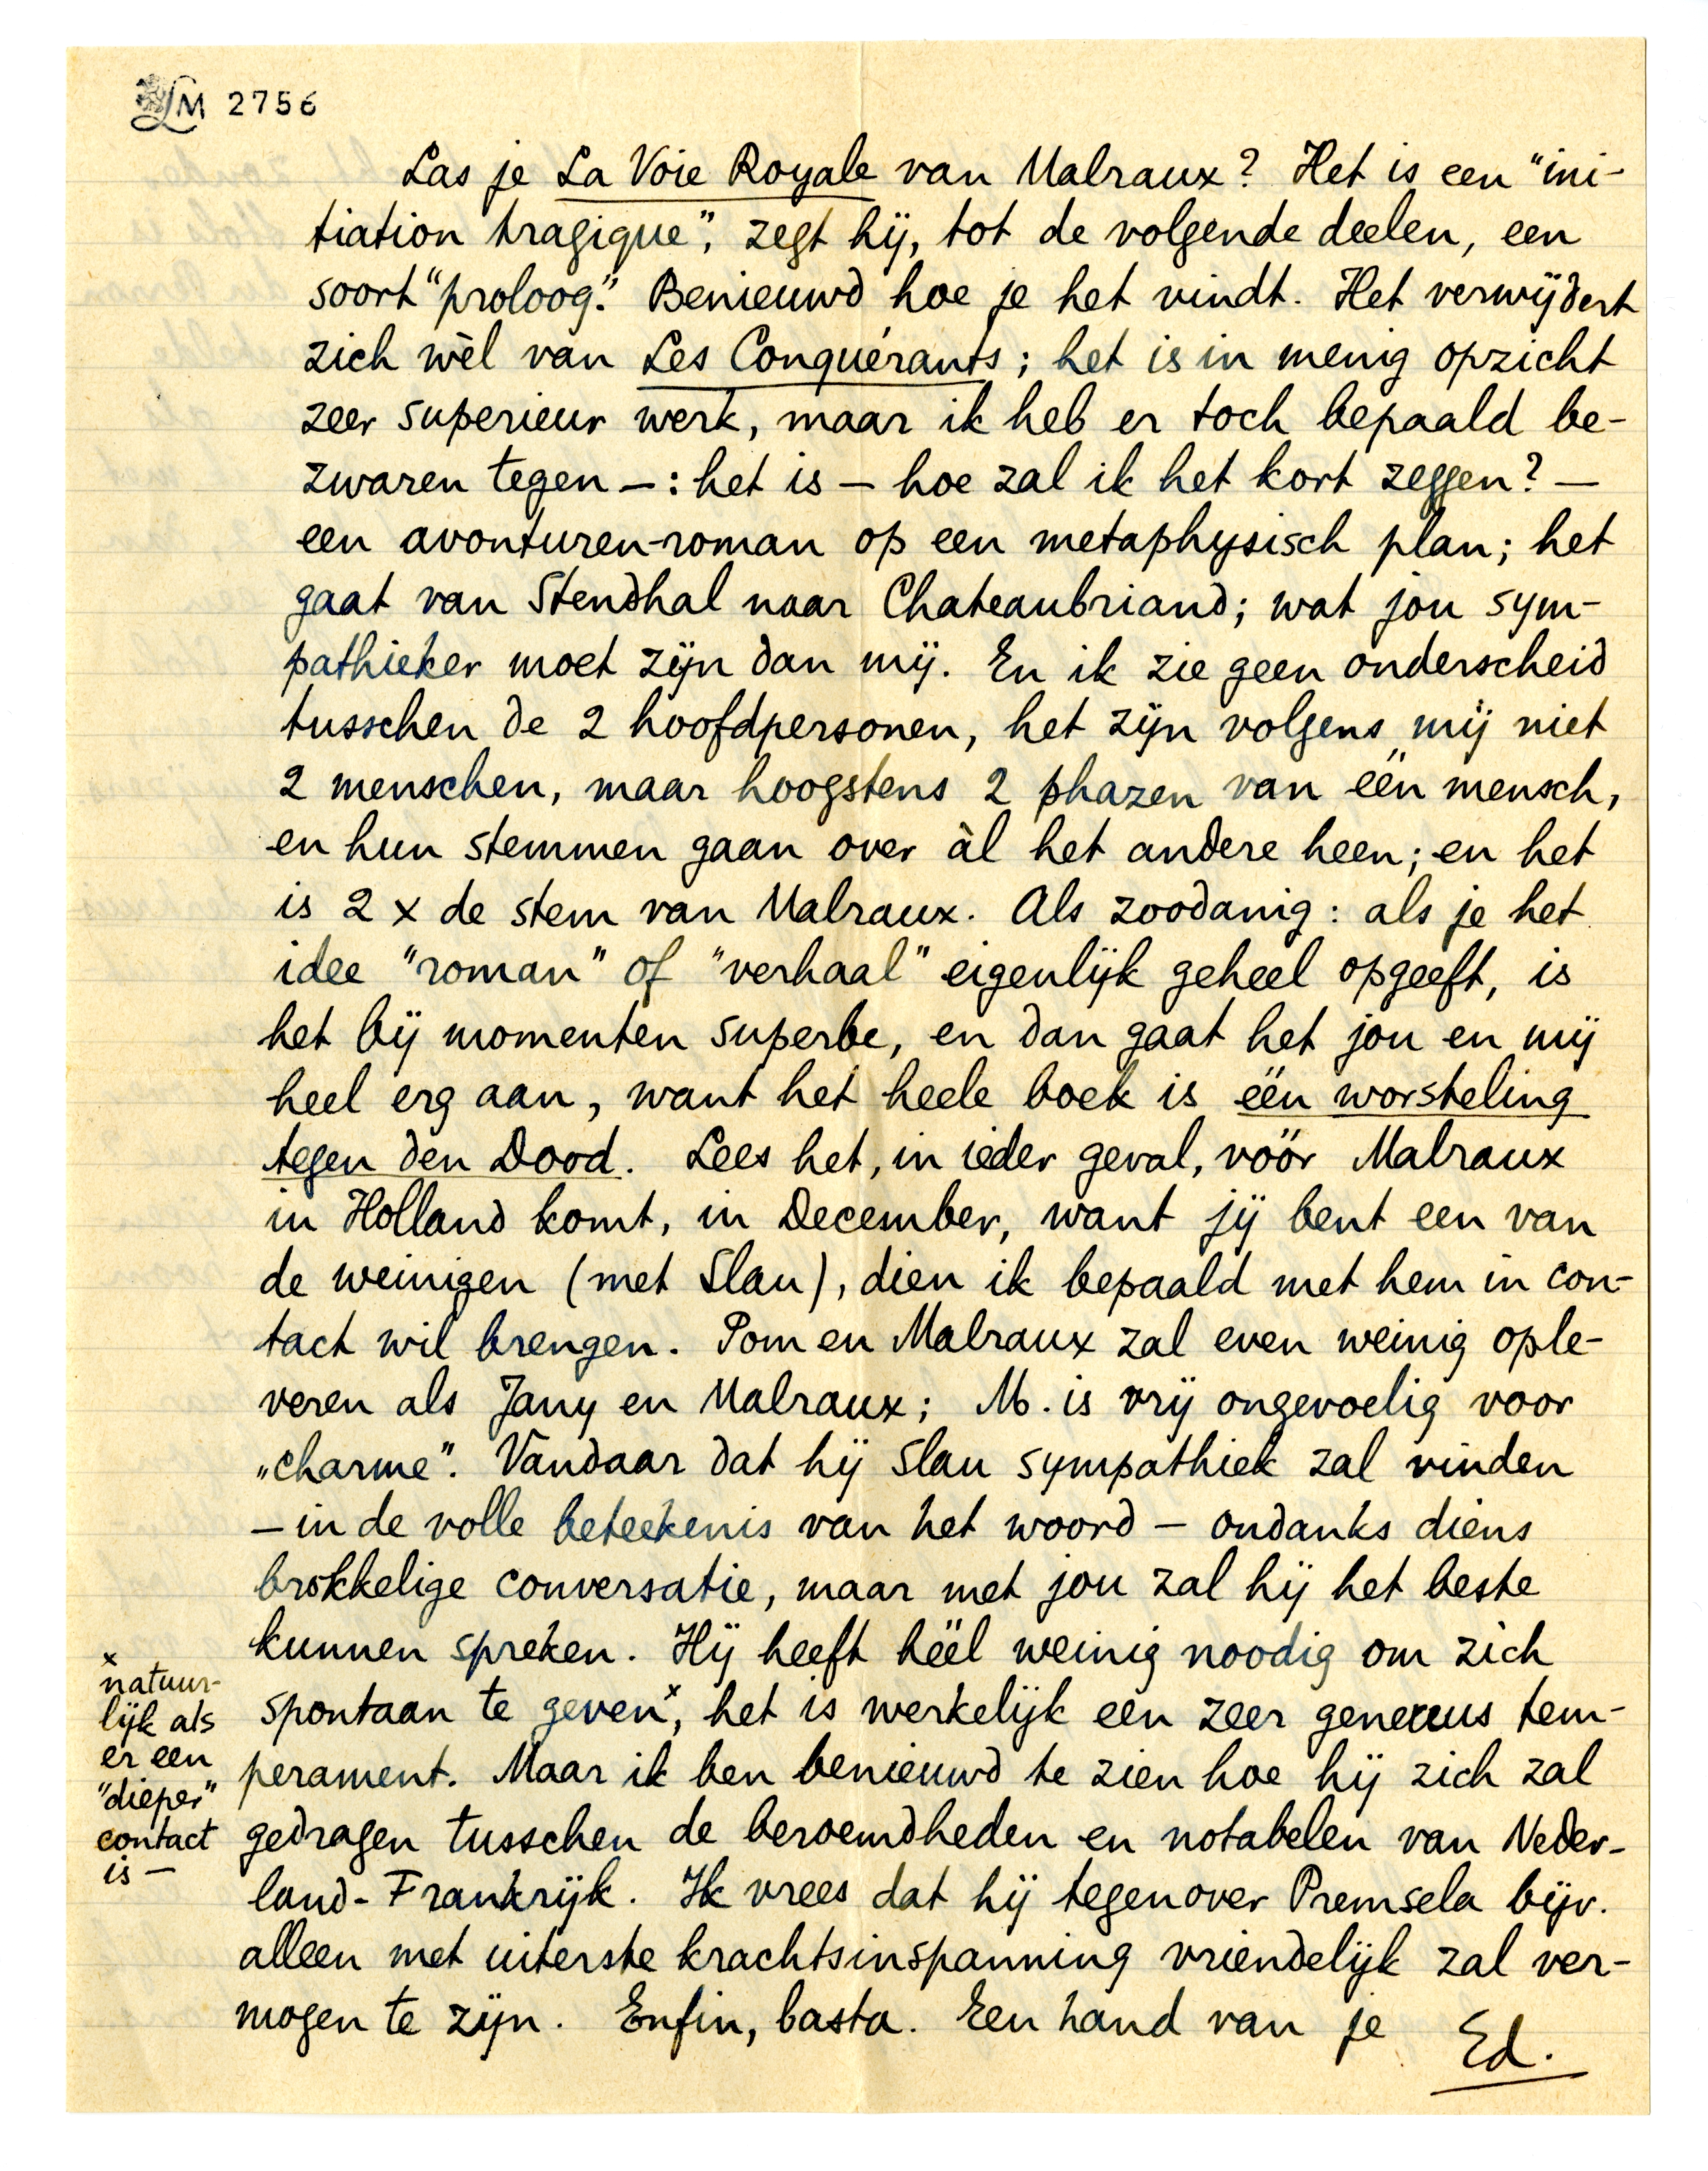 LM 2756
Las je La Voie Royale van Malraux? Het is een "ini-
tiation tragique", zegt hij, tot de volgende deelen, een
soort "proloog". Benieuwd hoe je het vindt. Het verwijdert
zich wèl van Les Conquérants; het is in menig opzicht
zeer superieur werk, maar ik heb er toch bepaald be-
zwaren tegen —: het is — hoe zal ik het kort zeggen? —
een avonturen-roman op een metaphysisch plan; het
gaat van Stendhal naar Chateaubriand; wat jou sym-
pathieker moet zijn dan mij. En ik zie geen onderscheid
tusschen de 2 hoofdpersonen, het zijn volgens mij niet
2 menschen, maar hoogstens 2 phazen van één mensch,
en hun stemmen gaan over àl het andere heen; en het
is 2 x de stem van Malraux. Als zoodanig: als je het
idee "roman" of "verhaal" eigenlijk geheel opgeeft, is
het bij momenten superbe, en dan gaat het jou en mij
heel erg aan, want het heele boek is één worsteling
tegen den Dood. Lees het, in ieder geval, vóór Malraux
in Holland komt, in December, want jij bent een van
de weinigen (met Slau), dien ik bepaald met hem in con-
tact wil brengen. Pom en Malraux zal even weinig ople-
veren als Jany en Malraux; M. is vrij ongevoelig voor
„charme". Vandaar dat hij Slau sympathiek zal vinden
— in de volle beteekenis van het woord — ondanks diens
brokkelige conversatie, maar met jou zal hij het beste
kunnen spreken. Hij heeft héél weinig noodig om zich
spontaan te geven x, het is werkelijk een zeer genereus tem-
perament. Maar ik ben benieuwd te zien hoe hij zich zal
gedragen tusschen de beroemdheden en notabelen van Neder-
land-Frankrijk. Ik vrees dat hij tegenover Premsela bijv.
alleen met uiterste krachtsinspanning vriendelijk zal ver-
mogen te zijn. Enfin, basta. Een hand van je
Ed.
x
natuur-
lijk als
er een
"dieper"
contact
is —